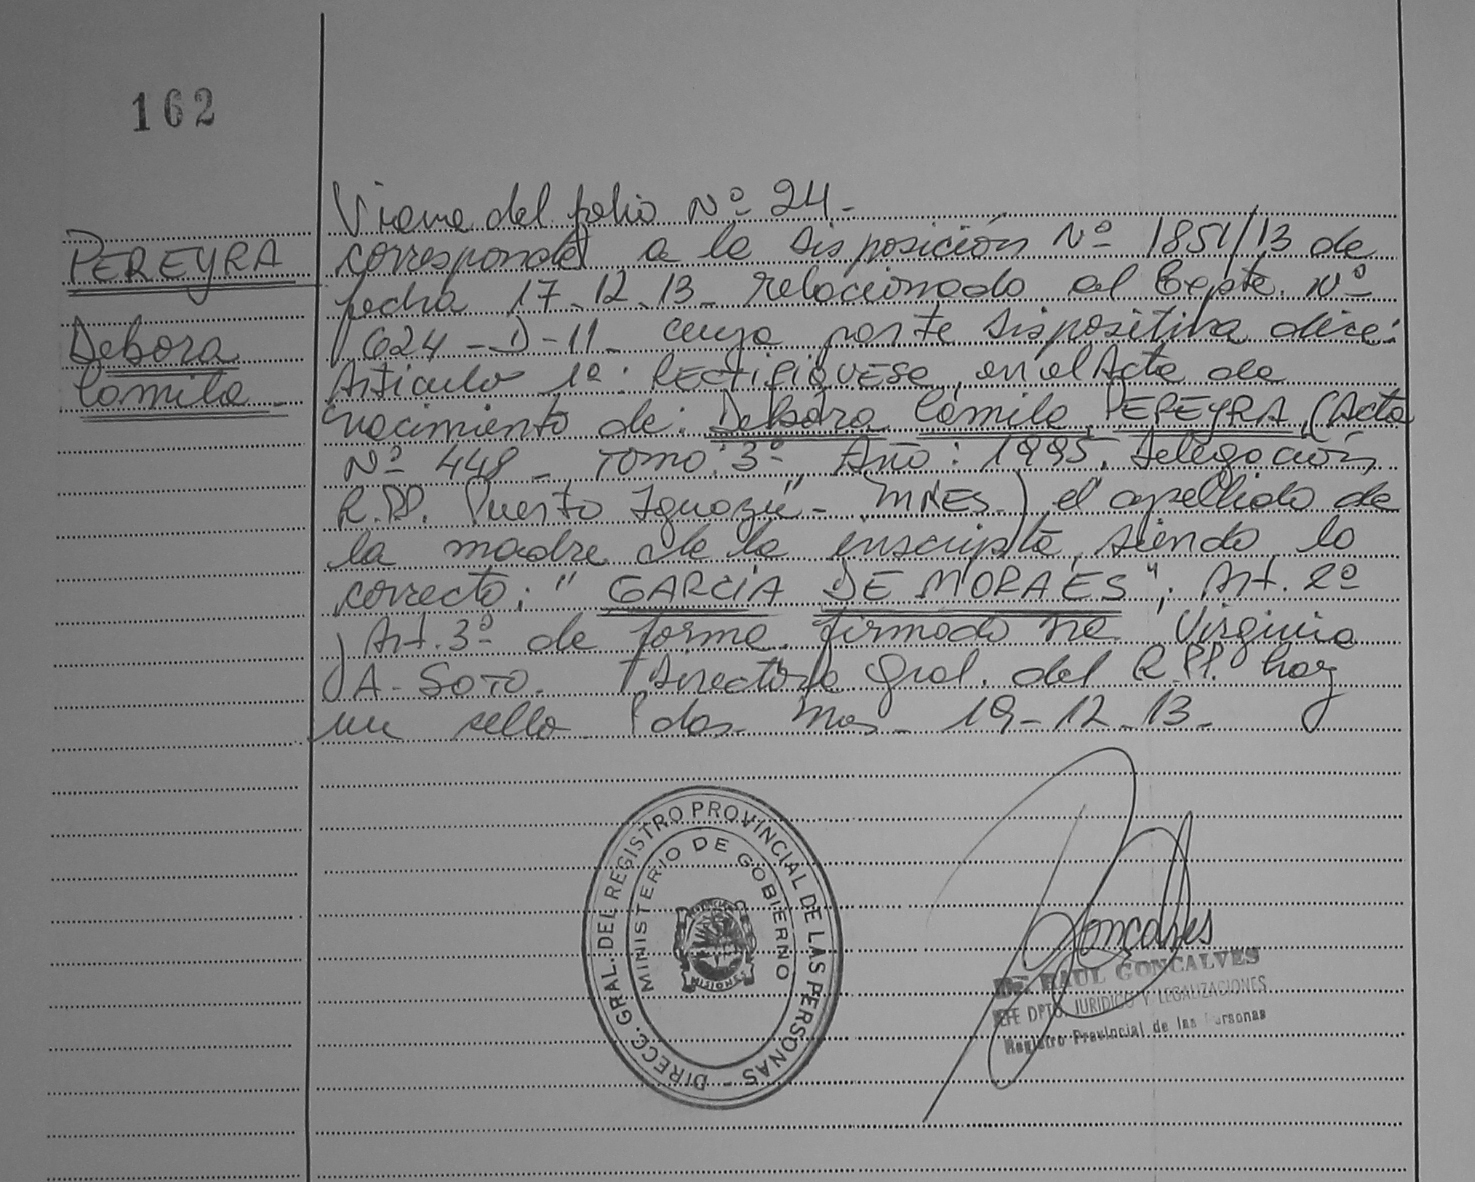 162
PEREYRA
Debora
Camila -
Viene del folio Nº 24 -
corresponde a la Disposición Nº 1851/13 de
fecha 17-12-13 - relacionado al Expte. Nº
624-D-11 - cuya parte dispositiva dice:
Artículo 1º: RECTIFIQUESE, en el Acta de
nacimiento de: Debora Camila PEREYRA (Acta
Nº 448 - Tomo: 3º, Año: 1995, Delegación
R.PP. Puerto Iguazú" - MNES.) el apellido de
la madre de la inscripta, siendo lo
correcto: " GARCÍA DE MORAES"; Art. 2º
y Art. 3º de forma, firmado Virginia
A. SOTO. Directora Gral. del R.PP. hay
un sello Pdas. Mnes - 19-12-13 -
DIRECC. GRAL. DEL REGISTRO PROVINCIAL DE LAS PERSONAS -
MINISTERIO DE GOBIERNO
PROVINCIA
MISIONES
Goncalves
Dr. RAUL GONCALVES
JEFE DPTO. JURIDICO Y LEGALIZACIONES
Registro Provincial de las Personas